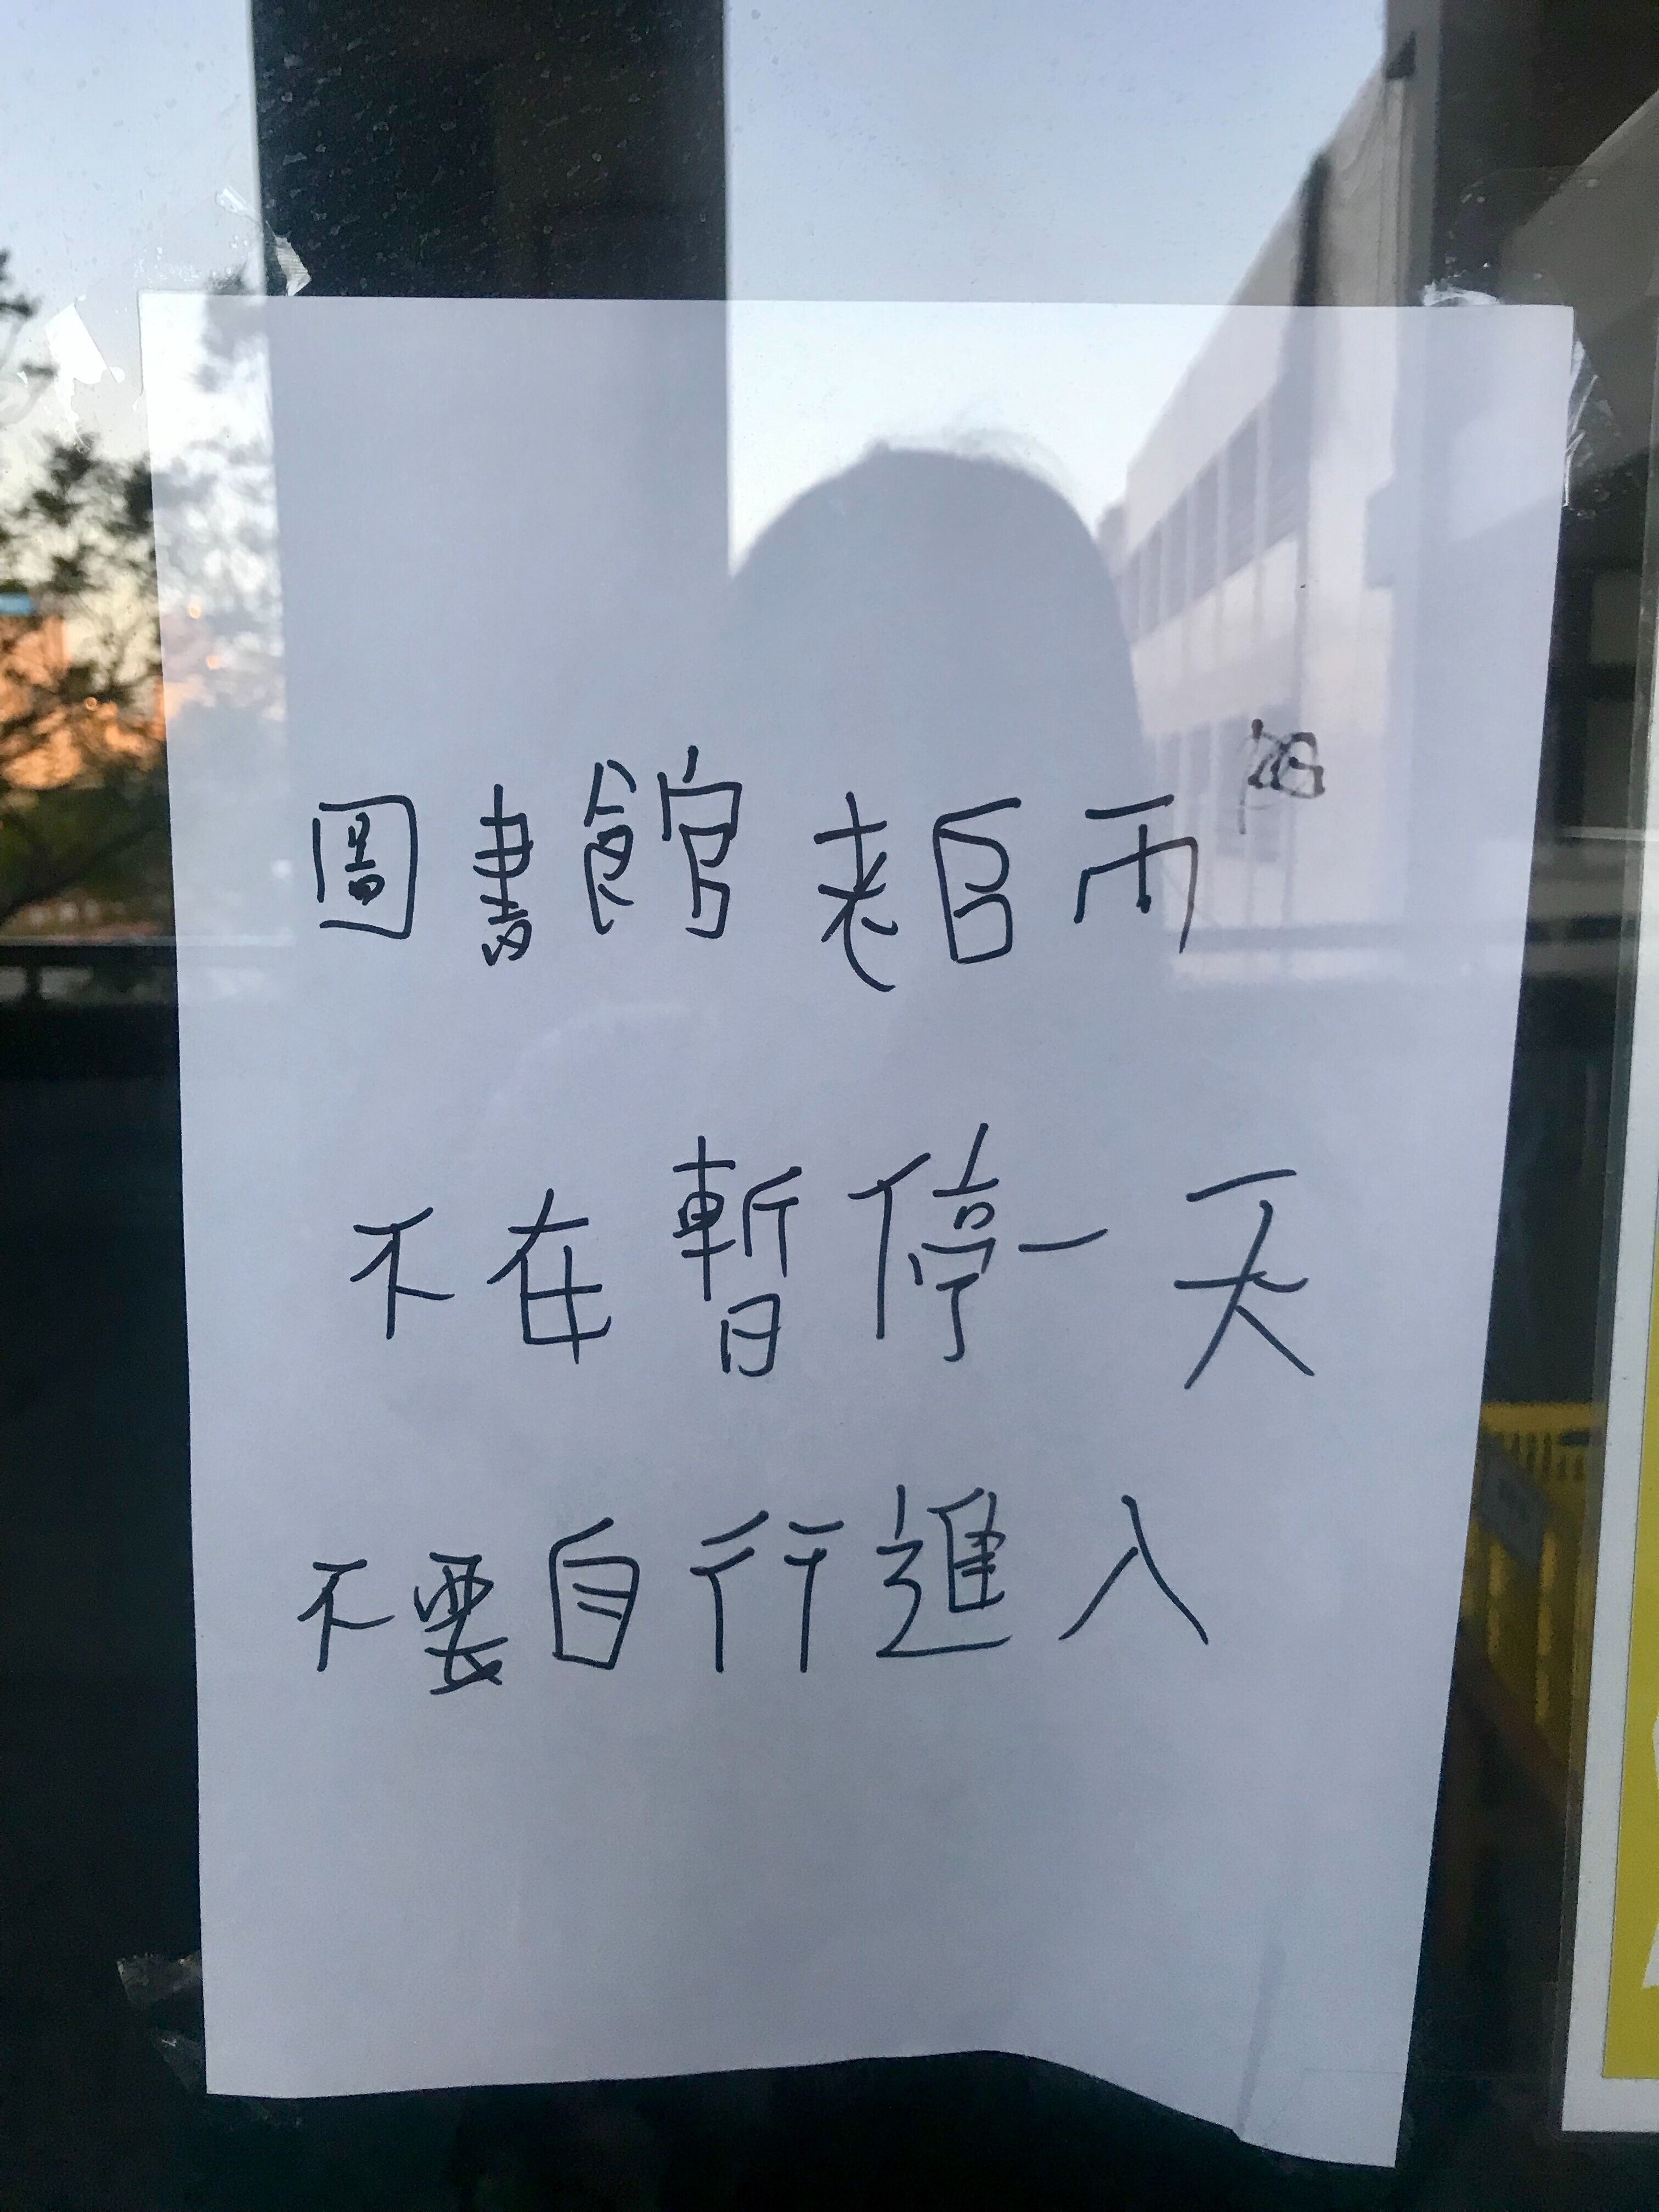 圖書館老師
不在暫停一天
不要自行進入